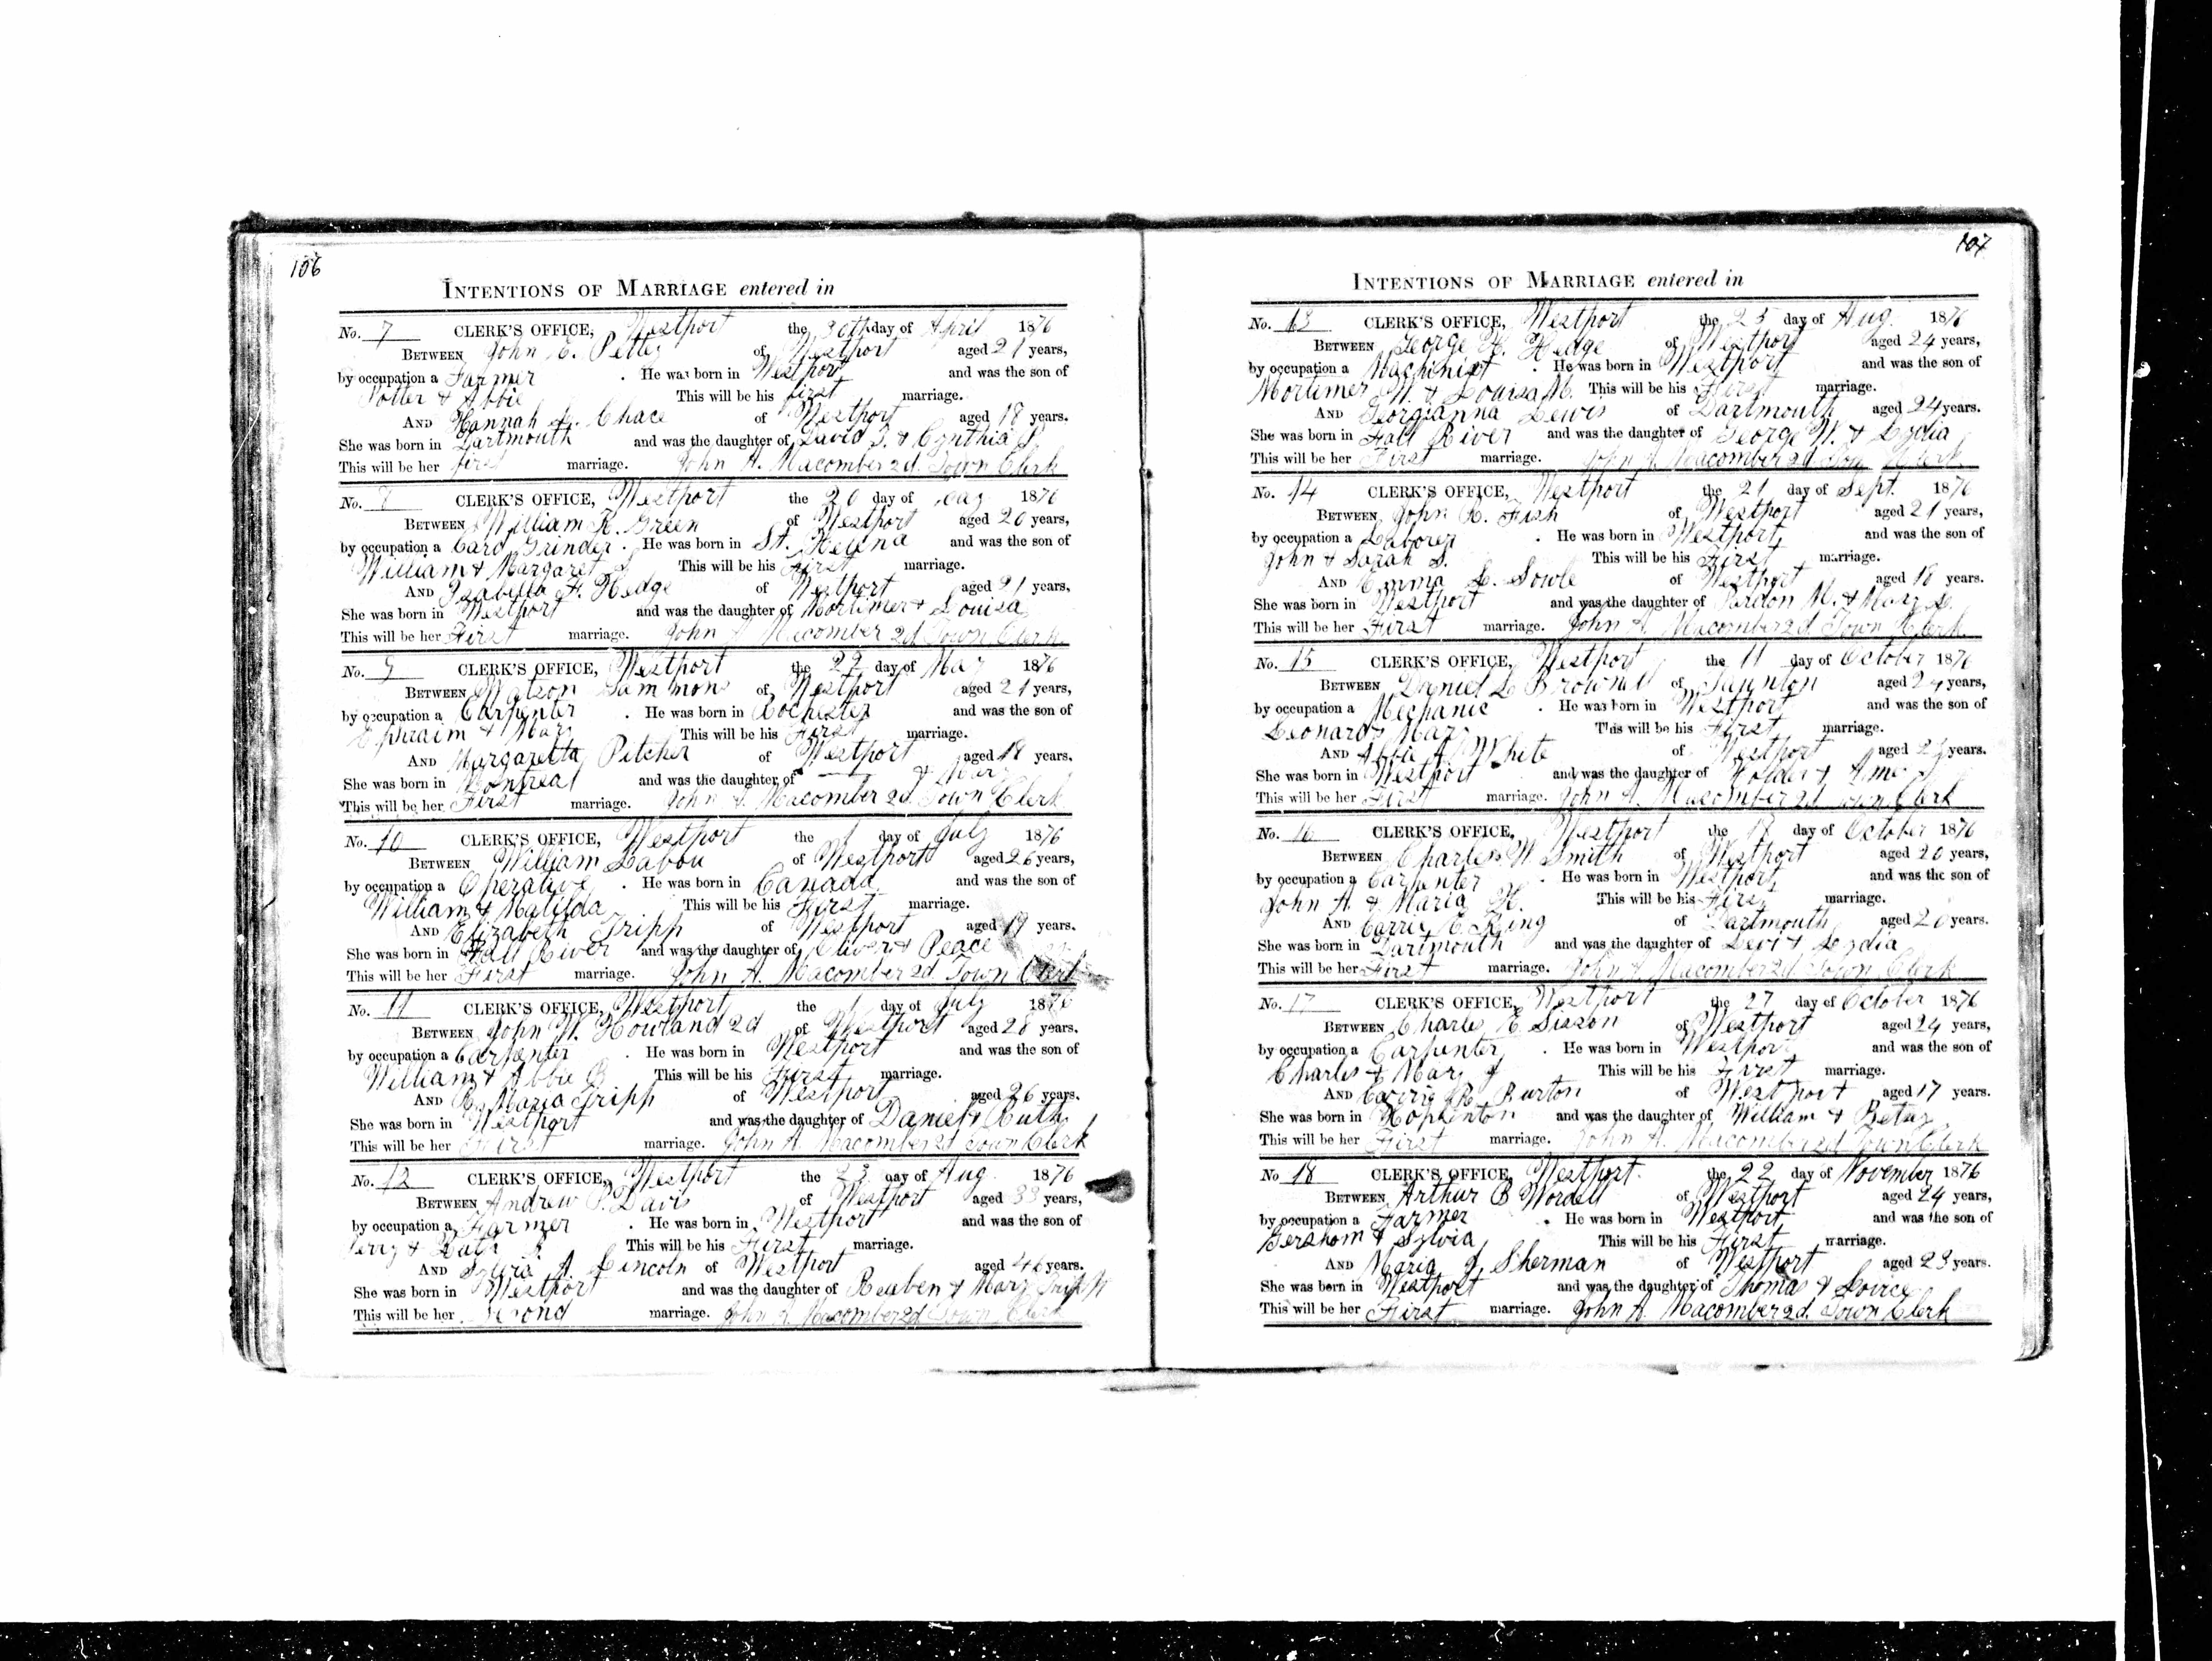 106
INTENTIONS OF MARRIAGE entered in
No. 7 CLERK'S OFFICE, Westport the 30th day of April 1876
BETWEEN John E. of Westport aged 21 years,
by occupation a Farmer . He was born in Westport and was the son of
Potter & Abbie This will be his first marriage.
AND Hannah Chace of Westport aged 18 years.
She was born in Dartmouth and was the daughter of David S. & Cynthia
This will be her first marriage. John A. Macomber 2d. Town Clerk
No. 8 CLERK'S OFFICE, Westport the 20 day of May 1876
BETWEEN William R. Green of Westport aged 20 years,
by occupation a Card Grinder . He was born in St. Helena and was the son of
William & Margaret This will be his First marriage.
AND Isabella F. Hedge of Westport aged 21 years,
She was born in Westport and was the daughter of Mortimer & Louisa
This will be her First marriage. John A Macomber 2d Town Clerk
No. 9 CLERK'S OFFICE, Westport the 27 day of May 1876
BETWEEN Watson Sammons of Westport aged 21 years,
by occupation a Carpenter . He was born in Rochester and was the son of
Ephraim & Mary This will be his First marriage.
AND Margaretta Pitcher of Westport aged 18 years.
She was born in Montreal and was the daughter of — & Mary
This will be her First marriage. John A. Macomber 2d. Town Clerk
No. 10 CLERK'S OFFICE, Westport the 1 day of July 1876
BETWEEN William Labou of Westport aged 26 years,
by occupation a Operative . He was born in Canada and was the son of
William & Matilda This will be his First marriage.
AND Elizabeth Tripp of Westport aged 19 years.
She was born in Fall River and was the daughter of Oliver & Peace
This will be her First marriage. John A. Macomber 2d. Town Clerk
No. 11 CLERK'S OFFICE, Westport the 1 day of July 1876
BETWEEN John W. Howland 2d of Westport aged 28 years.
by occupation a Carpenter . He was born in Westport and was the son of
William & Abbie B This will be his First marriage.
AND Maria Tripp of Westport aged 26 years.
She was born in Westport and was the daughter of Daniel & Ruth
This will be her First marriage. John A Macomber 2d Town Clerk
No. 12 CLERK'S OFFICE, Westport the 23 day of Aug. 1876
BETWEEN Andrew P. Davis of Westport aged 33 years,
by occupation a Farmer . He was born in Westport and was the son of
Perry & This will be his First marriage.
AND Sylvia A Lincoln of Westport aged 46 years.
She was born in Westport and was the daughter of Reuben & Mary Tripp
This will be her Second marriage. John A. Macomber 2d Town Clerk
107
INTENTIONS OF MARRIAGE entered in
No. 13 CLERK'S OFFICE, Westport the 23 day of Aug. 1876
BETWEEN George H. Hedge of Westport aged 24 years,
by occupation a Machinist . He was born in Westport and was the son of
Mortimer W. & Louisa M. This will be his First marriage.
AND Georgianna Lewis of Dartmouth aged 24 years.
She was born in Fall River and was the daughter of George W. & Lydia
This will be her First marriage. John A. Macomber 2d Town Clerk
No. 14 CLERK'S OFFICE, Westport the 21 day of Sept. 1876
BETWEEN John R. Fish of Westport aged 21 years,
by occupation a Laborer . He was born in Westport, and was the son of
John & Sarah S. This will be his First marriage.
AND Emma L. Sowle of Westport aged 18 years.
She was born in Westport and was the daughter of Pardon M. & Mary
This will be her First marriage. John A. Macomber 2d. Town Clerk
No. 15 CLERK'S OFFICE, Westport the 11 day of October 1876
BETWEEN Daniel L Brownell of Taunton aged 24 years,
by occupation a Mechanic . He was born in Westport and was the son of
Leonard & Mary This will be his First marriage.
AND Abbie A White of Westport aged years.
She was born in Westport and was the daughter of Holder &
This will be her First marriage. John A. Macomber 2d Town Clerk
No. 16 CLERK'S OFFICE, Westport the 17 day of October 1876
BETWEEN Charles W. Smith of Westport aged 20 years,
by occupation a Carpenter . He was born in Westport, and was the son of
John A. & Maria H. This will be his First marriage.
AND Carrie E. King of Dartmouth aged 20 years.
She was born in Dartmouth and was the daughter of Levi & Lydia
This will be her First marriage. John A. Macomber 2d. Town Clerk
No. 17 CLERK'S OFFICE, Westport the 27 day of October 1876
BETWEEN Charles E Sisson of Westport aged 24 years,
by occupation a Carpenter . He was born in Westport and was the son of
Charles & Mary J This will be his First marriage.
AND Carrie R. Burton of Westport aged 17 years.
She was born in Hopkinton and was the daughter of William & Betsy
This will be her First marriage. John A. Macomber 2d Town Clerk
No 18 CLERK'S OFFICE, Westport. the 22 day of November 1876
BETWEEN Arthur B Wordell of Westport aged 24 years,
by occupation a Farmer . He was born in Westport and was the son of
Gershom & Sylvia This will be his First marriage.
AND Maria J. Sherman of Westport aged 23 years.
She was born in Westport and was the daughter of Thomas & Lovice
This will be her First marriage. John A. Macomber 2d. Town Clerk